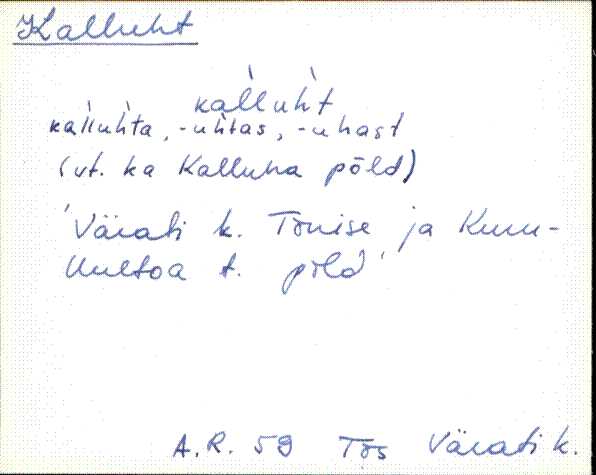 Kalluht
kal̀luh̀t
kal̀luh̀ta, -uhtas, -uhast
(vt. ka Kalluha põld)
'Värati k. Tõnise ja Kuru-
t. põld'
A.R. 59 Tõs Värati k.